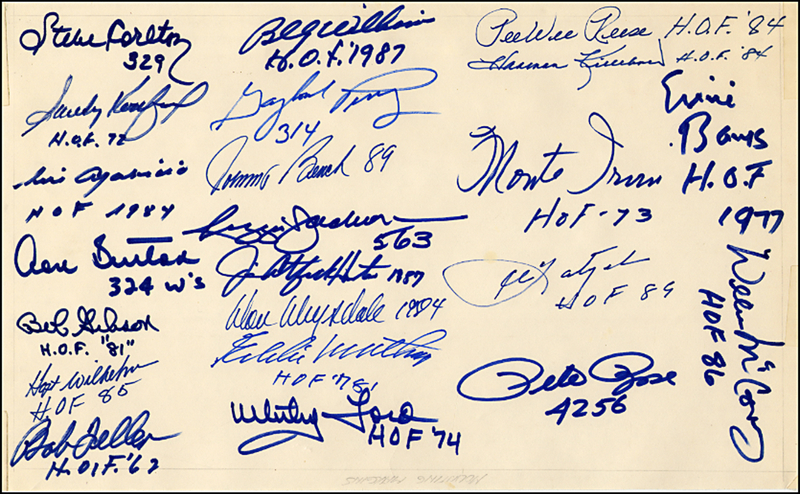 Steve Carlton
329
Sandy Koufax
H.O.F. 72
Luis Aparicio
HOF 1984
Don Sutton
324 W's
Bob Gibson
H.O.F. "81"
Hoyt Wilhelm
HOF 85
Bob Feller
H.O.F. '62
Billy Williams
H.O.F. '1987
Gaylord Perry
314
Johnny Bench 89
Reggie Jackson
563
Jim Catfish Hunter 1987
Don Drysdale 1984
Eddie Mathews
HOF '78
Whitey Ford
HOF '74
PeeWee Reese H.O.F. '84
Harmon Killebrew H.O.F. '84
Monte Irvin
HOF-73
HOF 89
Pete Rose
4256
Ernie
Banks
H.O.F
1977
Willie McCovey
HOF 86